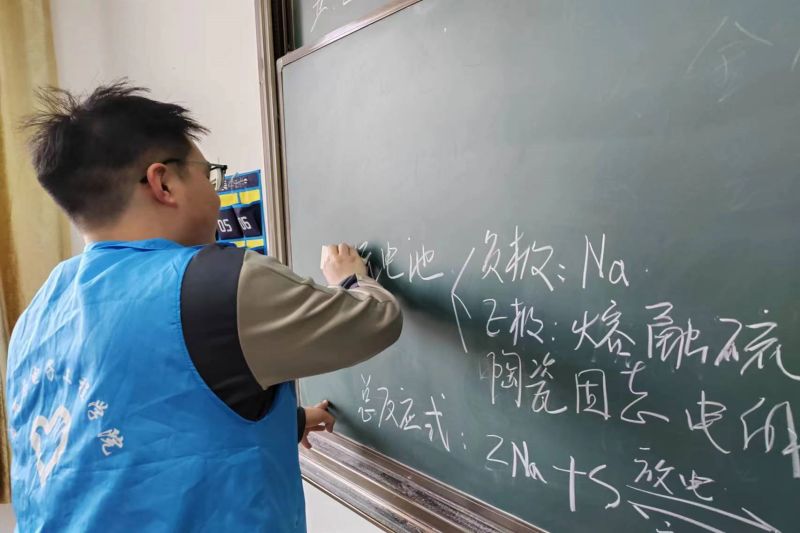 金
电池
负极: Na.
正极: 熔融硫
陶瓷固态电
总反应式: 2Na+S 放电
05 06
学院